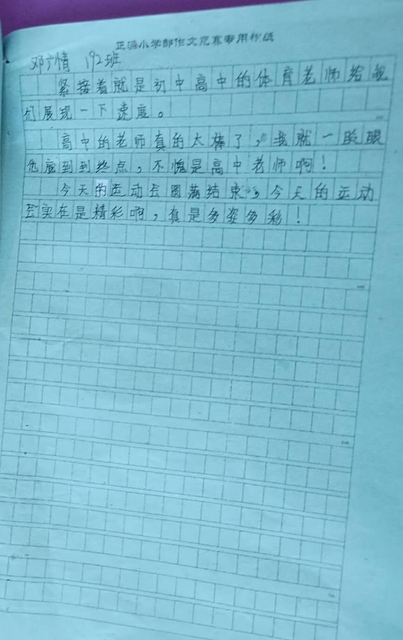 正源小学部作文竞赛专用稿纸
192班
紧接着就是初中高中的体育老师给我
们展现一下速度。
高中的老师真的太棒了，我就一眨眼
他应到到终点，不愧是高中老师啊！
今天的运动会圆满结束，今天的运动
会实在是精彩啊，真是多姿多彩！